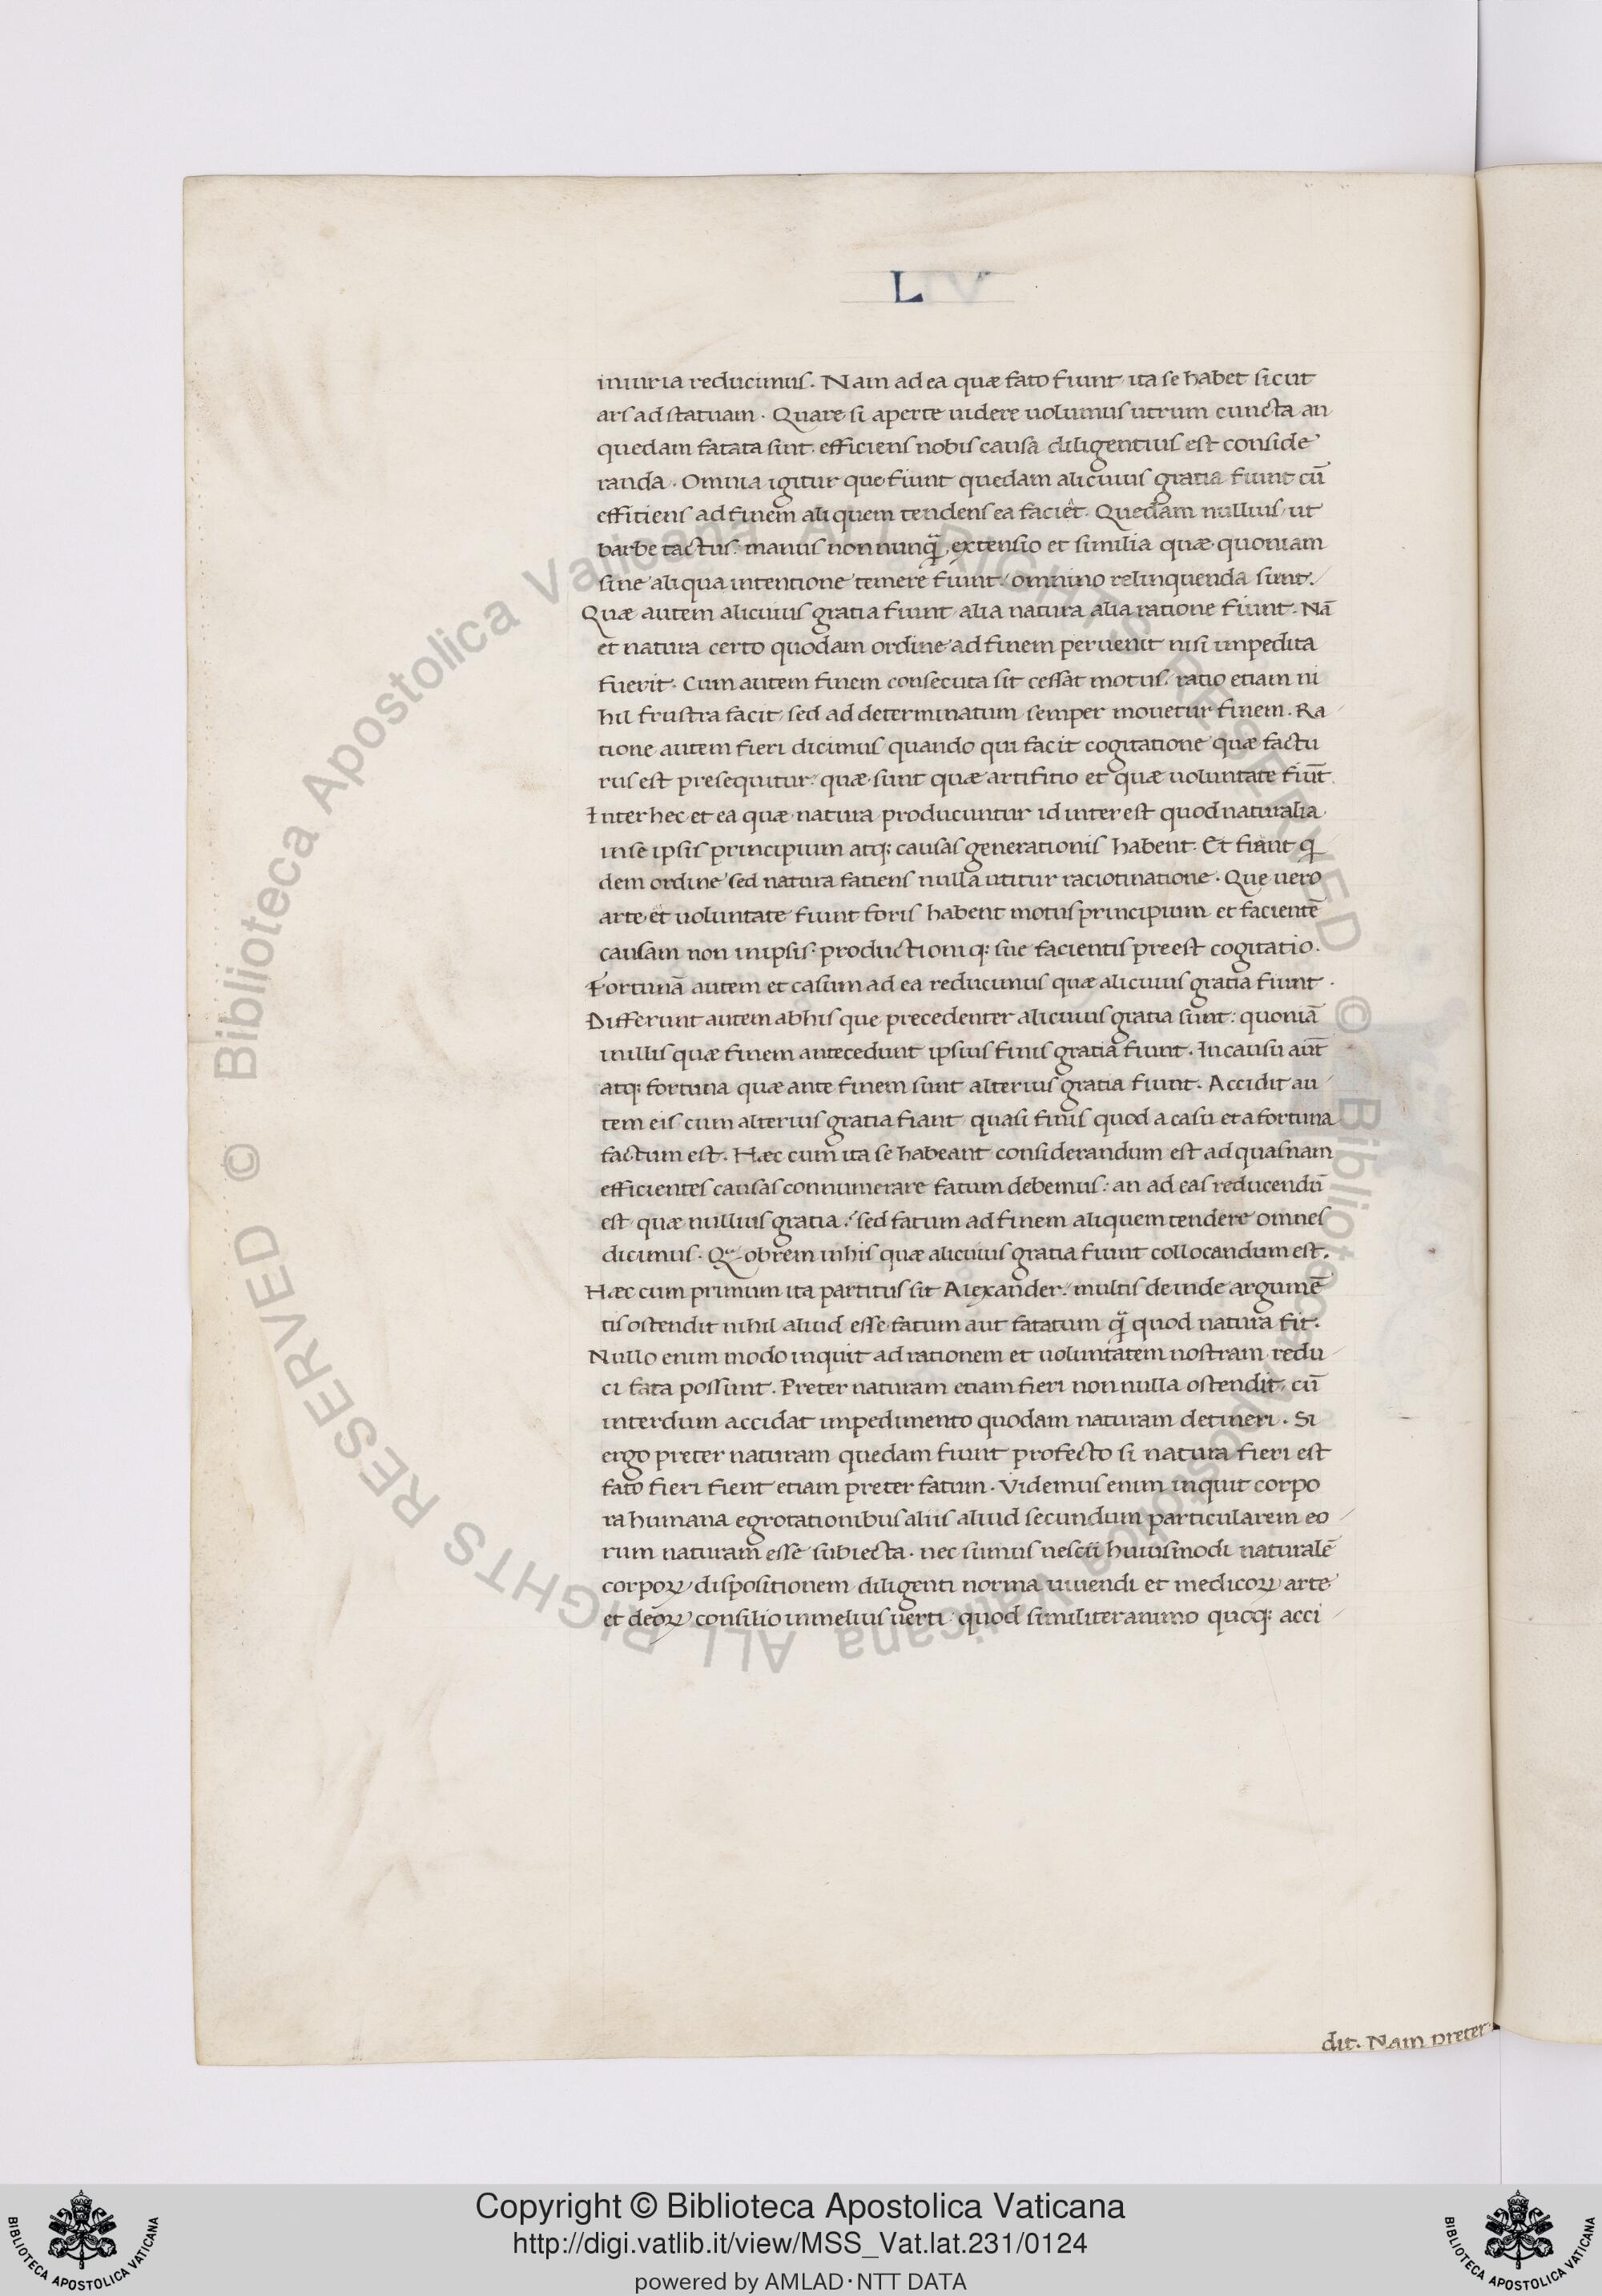 L
iniuria reducimus. Nam ad ea quæ fato fiunt ita se habet sicut
ars ad statuam. Quare si aperte uidere uolumus utrum cuncta an
quedam fatata sint, efficiens nobis causa diligentius est conside
randa. Omnia igitur que fiunt quedam alicuius gratia fiunt cū
effitiens ad finem aliquem tendens ea faciet. Quedam nullius, ut
barbe tactus: manus non nunq̄ extensio et similia quæ quoniam
sine aliqua intentione temere fiunt omnino relinquenda sunt.
Quæ autem alicuius gratia fiunt alia natura alia ratione fiunt. Nā
et natura certo quodam ordine ad finem peruenit nisi impedita
fuerit. Cum autem finem consecuta sit cessat motus, ratio etiam ni
hil frustra facit, sed ad determinatum semper mouetur finem. Ra
tione autem fieri dicimus quando qui facit cogitatione quæ factu
rus est presequitur: quæ sunt quæ artifitio et quæ uoluntate fiūt
Inter hec et ea quæ natura producuntur id interest quod naturalia
in se ipsis principium atq; causas generationis habent. Et fiant q
dem ordine sed natura fatiens nulla utitur raciotinatione. Que uero
arte et uoluntate fiunt foris habent motus principium et facientē
causam non in ipsis productioniq; sue facientis preest cogitatio.
Fortunā autem et casum ad ea reducimus quæ alicuius gratia fiunt.
Differunt autem ab his que precedenter alicuius gratia sunt: quoniā
in illis quæ finem antecedunt ipsius finis gratia fiunt. In causu aūt
atq; fortuna quæ ante finem sunt alterius gratia fiunt. Accidit au
tem eis cum alterius gratia fiant quasi finis quod a casu et a fortuna
factum est. Hæc cum ita se habeant considerandum est ad quasnam
efficientes causas connumerare fatum debemus: an ad eas reducendū
est quæ nullius gratia: sed fatum ad finem aliquem tendere omnes
dicimus. Qᵃobrem in his quæ alicuius gratia fiunt collocandum est.
Hæc cum primum ita partitus sit Alexander: multis deinde argumē
tis ostendit nihil aliud esse fatum aut fatatum q̄ quod natura fit.
Nullo enim modo inquit ad rationem et uoluntatem nostram redu
ci fata possunt. Preter naturam etiam fieri non nulla ostendit, cū
interdum accidat impedimento quodam naturam detineri. Si
ergo preter naturam quedam fiunt profecto si natura fieri est
fato fieri fient etiam preter fatum. Videmus enim inquit corpo
ra humana egrotationibus aliis aliud secundum particularem eo
rum naturam esse subiecta. nec sumus nescii huiusmodi naturalē
corpoꝝ dispositionem diligenti norma uiuendi et medicoꝝ arte
et deoꝝ consilio in melius uerti quod similiter animo quoq; acci
dit. Nam preter
Copyright © Biblioteca Apostolica Vaticana
http://digi.vatlib.it/view/MSS_Vat.lat.231/0124
powered by AMLAD·NTT DATA
BIBLIOTECA APOSTOLICA VATICANA
BIBLIOTECA APOSTOLICA VATICANA
© Biblioteca Apostolica Vaticana ALL RIGHTS RESERVED
© Biblioteca Apostolica Vaticana ALL RIGHTS RESERVED